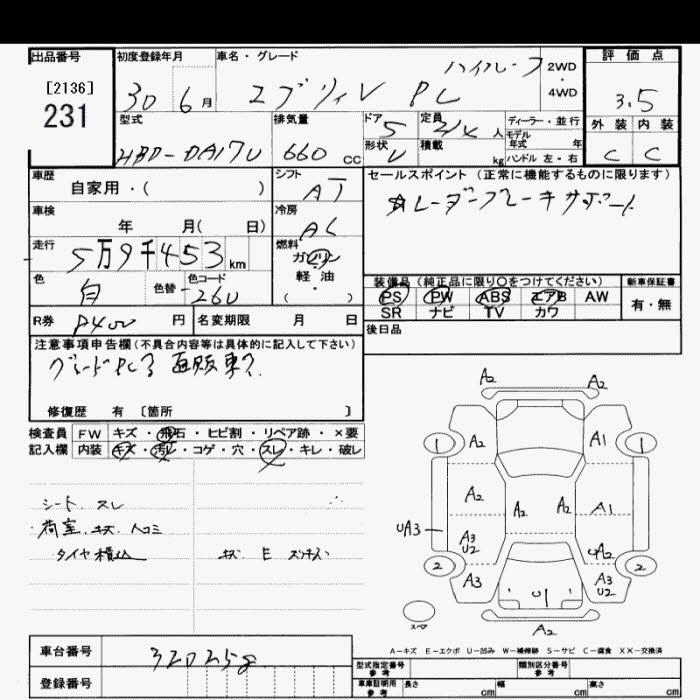 出品番号 初度登録年月 車名・グレード ハイルーフ 2WD・4WD 評価点
[2136]
231
30 6月 エブリィV PC 3.5
型式 排気量 ドア 定員 ディーラー・並行 外装 内装
HBD-DA17V 660 CC 5 2/4 人 モデル年式 年
形状 V 積載 kg ハンドル 左・右 C C
車歴 シフト セールスポイント (正常に機能するものに限ります)
自家用・( ) AT
☆レーダーブレーキサポート
車検 冷房
年 月( 日) AC
走行 燃料
5万9千453km ガソリン
軽・油
( )
色 色替 色コード
白 26U
装備品 (純正品に限り○をつけてください) 新車保証書
PS PW ABS エアB AW 有・無
SR ナビ TV カワ
R券 P400 円 名変期限 月 日 後日品
注意事項申告欄(不具合内容等は具体的に記入して下さい)
グレードPC
修復歴 有 〔箇所 〕
検査員 FW キズ・飛石・ヒビ割・リペア跡・×要
記入欄 内装 キズ・汚レ・コゲ・穴・スレ・キレ・破レ
シート、スレ
荷室、キズ、ヘコミ
タイヤ積込
A2 A2
1 A2 A1 1
A2 A2 A2 A1
UA3 A3 U2 UA2
2 A3 U1 A3 U2 2
スペア A2
A−キズ E−エクボ U−凹み W−補修跡 S−サビ C−腐食 XX−交換済
車台番号 320258
登録番号
型式指定番号 参考 類別区分番号 参考
車庫証明用 参考 長さ cm 幅 cm 高さ cm